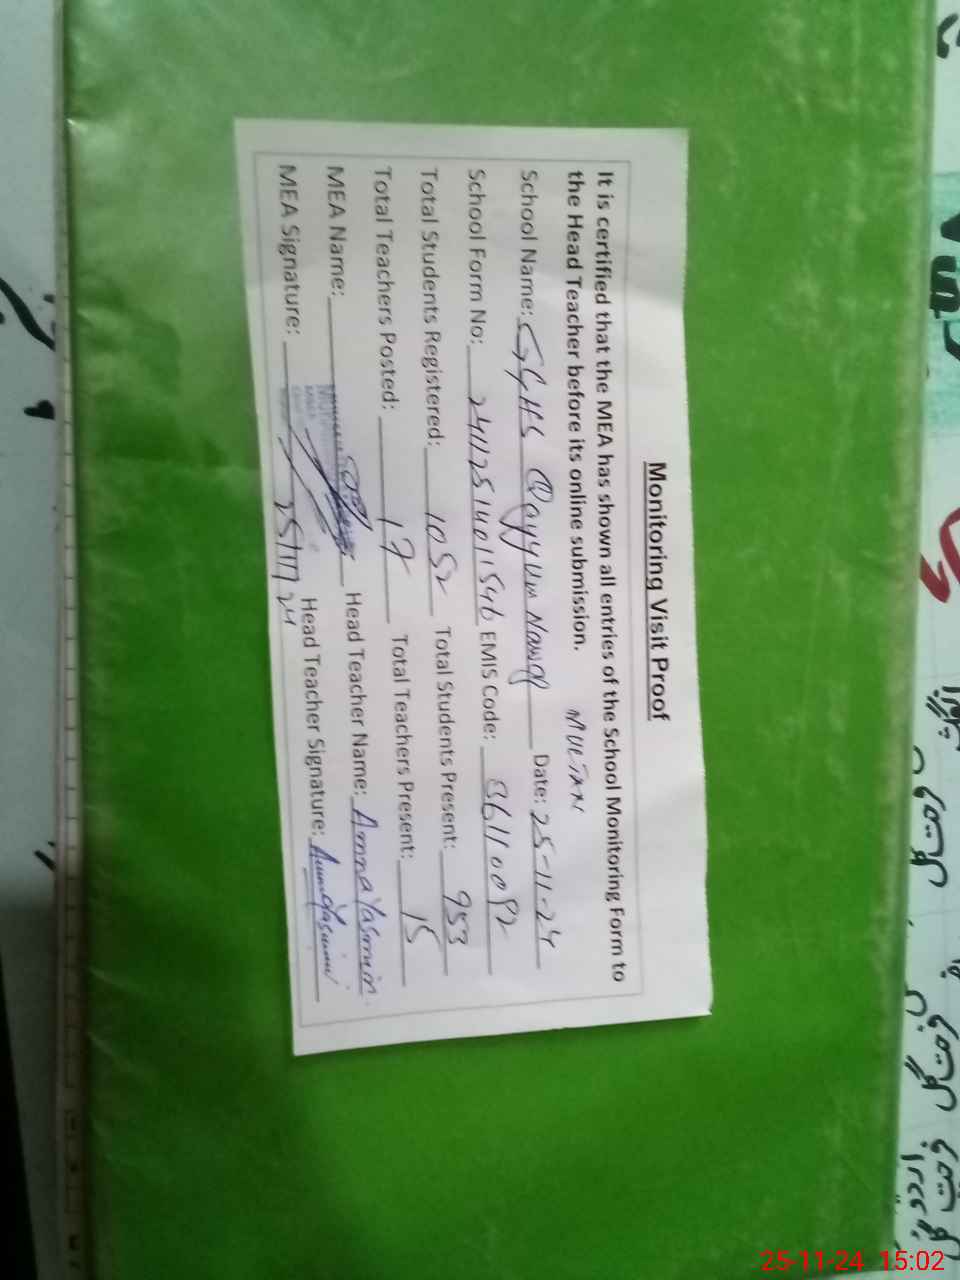 Monitoring Visit Proof
It is certified that the MEA has shown all entries of the School Monitoring Form to
the Head Teacher before its online submission. MULTAN
School Name: GGHS Qayyum Nawaz Date: 25-11-24
School Form No: 2411251401546 EMIS Code: 36110092
Total Students Registered: 1052 Total Students Present: 953
Total Teachers Posted: 17 Total Teachers Present: 15
MEA Name: Head Teacher Name: Amna Yasmin
MEA Signature: 25/11/24 Head Teacher Signature: Amna Yasmin
25-11-24 15:02